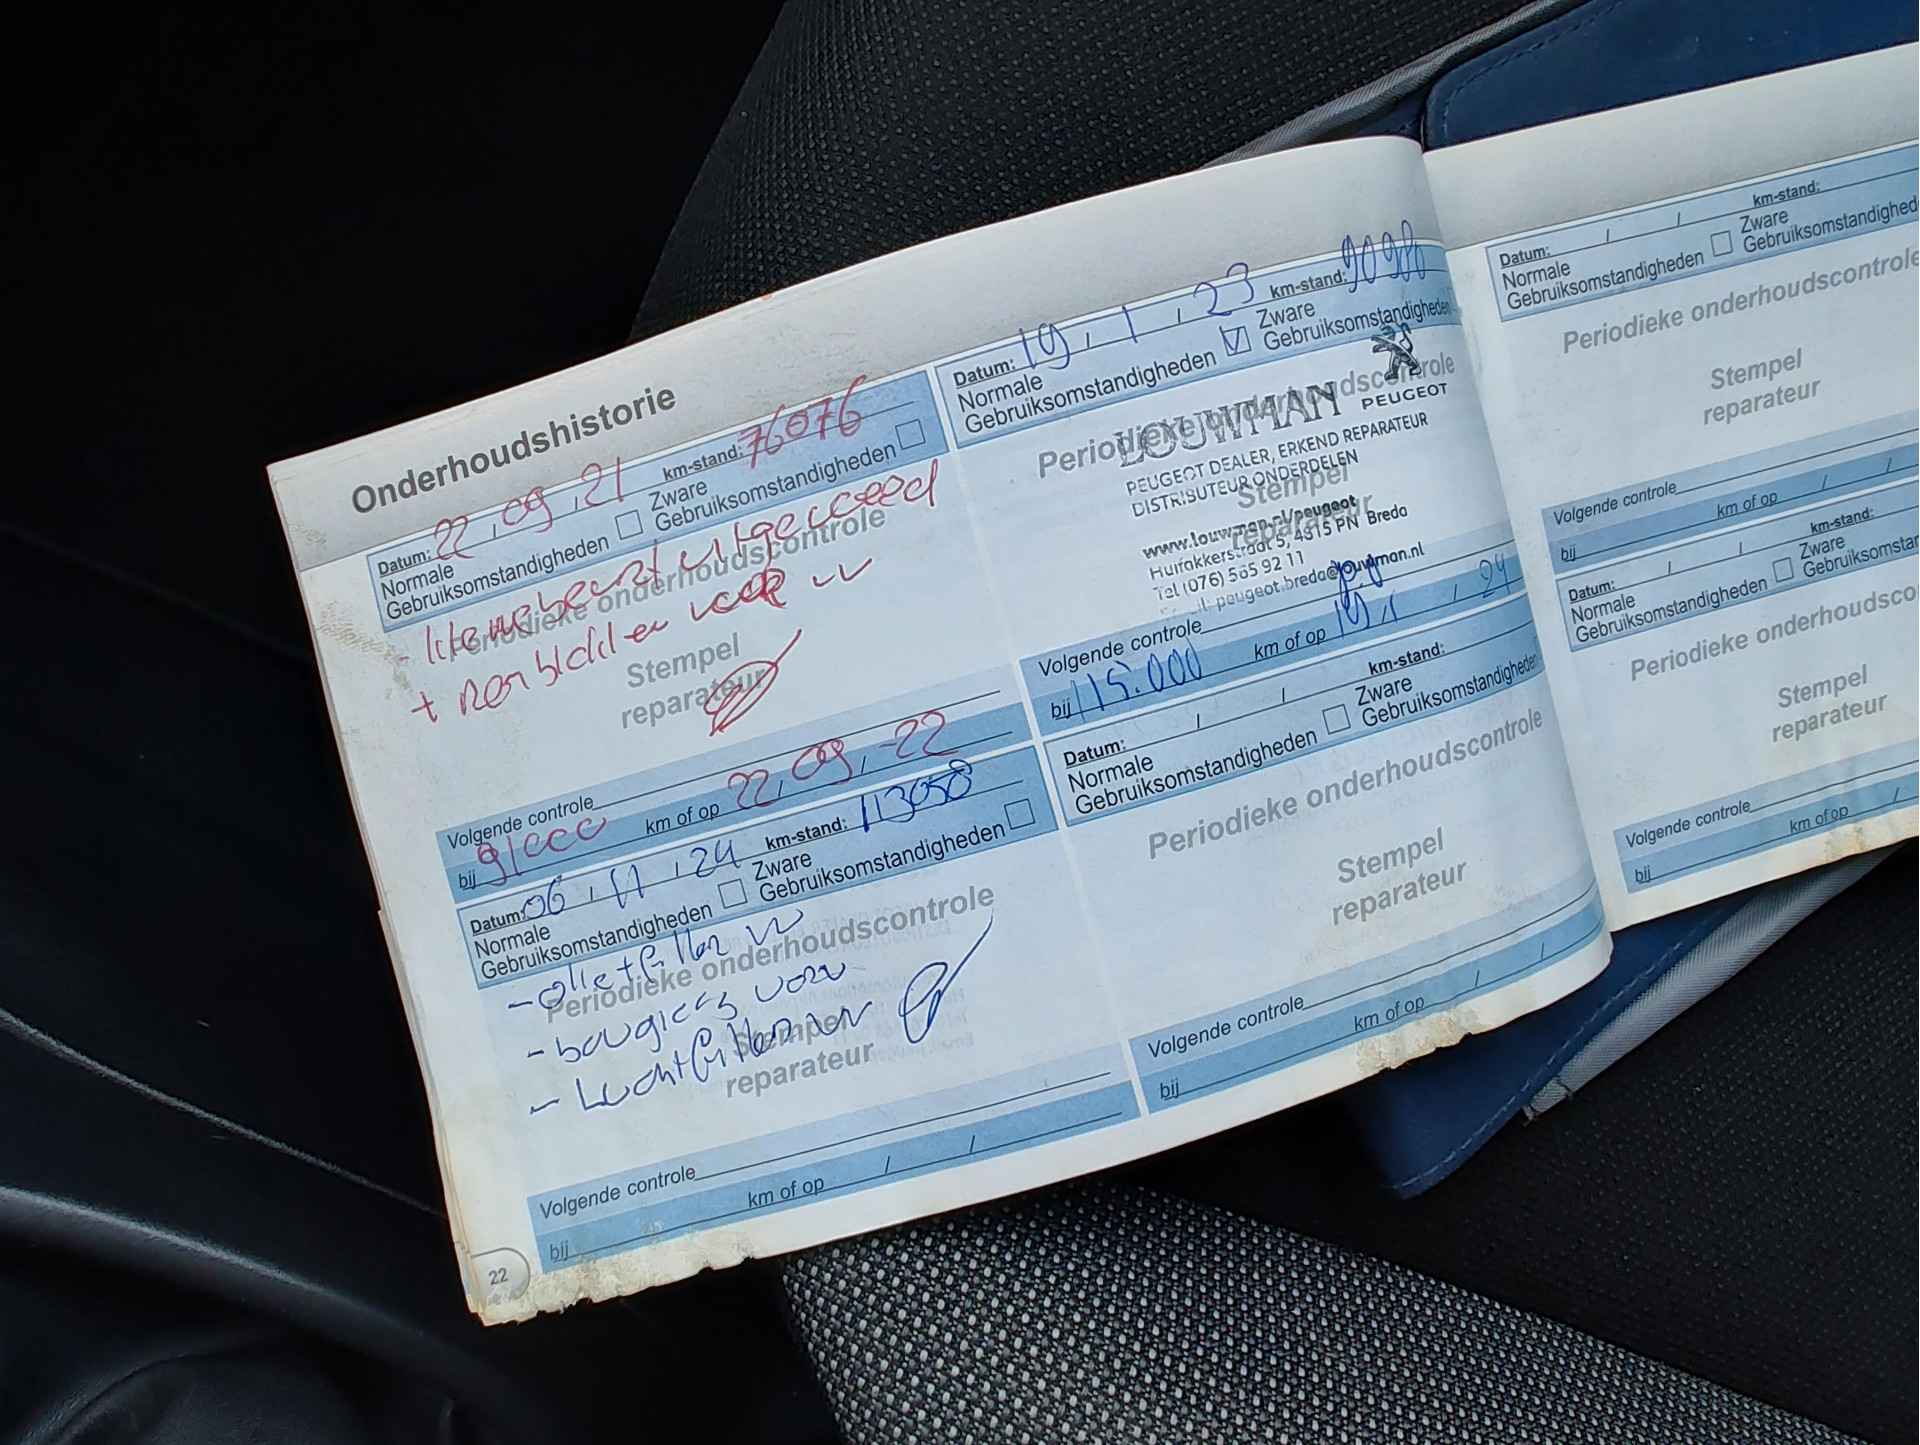 Onderhoudshistorie
Datum: 22 / 09 / 21 km-stand: 76076
Normale Gebruiksomstandigheden Zware Gebruiksomstandigheden
Periodieke onderhoudscontrole
Stempel
reparateur
+ voor
Volgende controle
bij 91000 km of op 22 / 09 / 22
Datum: 06 / 11 / 24 km-stand: 113058
Normale Gebruiksomstandigheden Zware Gebruiksomstandigheden
Periodieke onderhoudscontrole
Stempel
reparateur
- olie + filter vv
- bougies voor
- Luchtfilter
Volgende controle
bij km of op / /
22
Datum: 19 / 1 / 23 km-stand:
Normale Gebruiksomstandigheden V Zware Gebruiksomstandigheden
Periodieke onderhoudscontrole
Stempel
reparateur
LOUWMAN PEUGEOT
PEUGEOT DEALER, ERKEND REPARATEUR
DISTRIBUTEUR ONDERDELEN
www.louwman.nl/peugeot
Huifakkerstraat 5, 4815 PN Breda
Tel (076) 565 92 11
peugeot.breda@louwman.nl
Volgende controle
bij 115.000 km of op 19 / 1 / 24
Datum: / / km-stand:
Normale Gebruiksomstandigheden Zware Gebruiksomstandigheden
Periodieke onderhoudscontrole
Stempel
reparateur
Volgende controle
bij km of op / /
Datum: / / km-stand:
Normale Gebruiksomstandigheden Zware Gebruiksomstandighed
Periodieke onderhoudscontrole
Stempel
reparateur
Volgende controle
bij km of op / /
Datum: / / km-stand:
Normale Gebruiksomstandigheden Zware Gebruiksomstan
Periodieke onderhoudsco
Stempel
reparateur
Volgende controle
bij km of op /